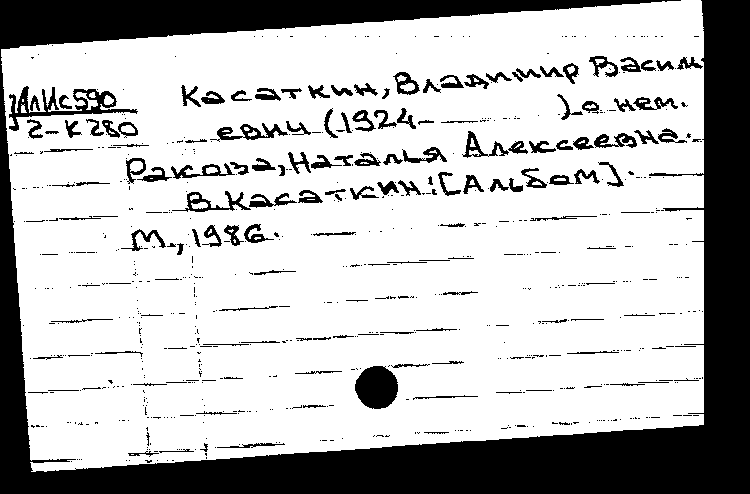 АлИс590
2-К280
Касаткин, Владимир Василь
евич (1924- ) о нем.
Ракова, Наталья Алексеевна.
В. Касаткин: [Альбом].
М., 1986.